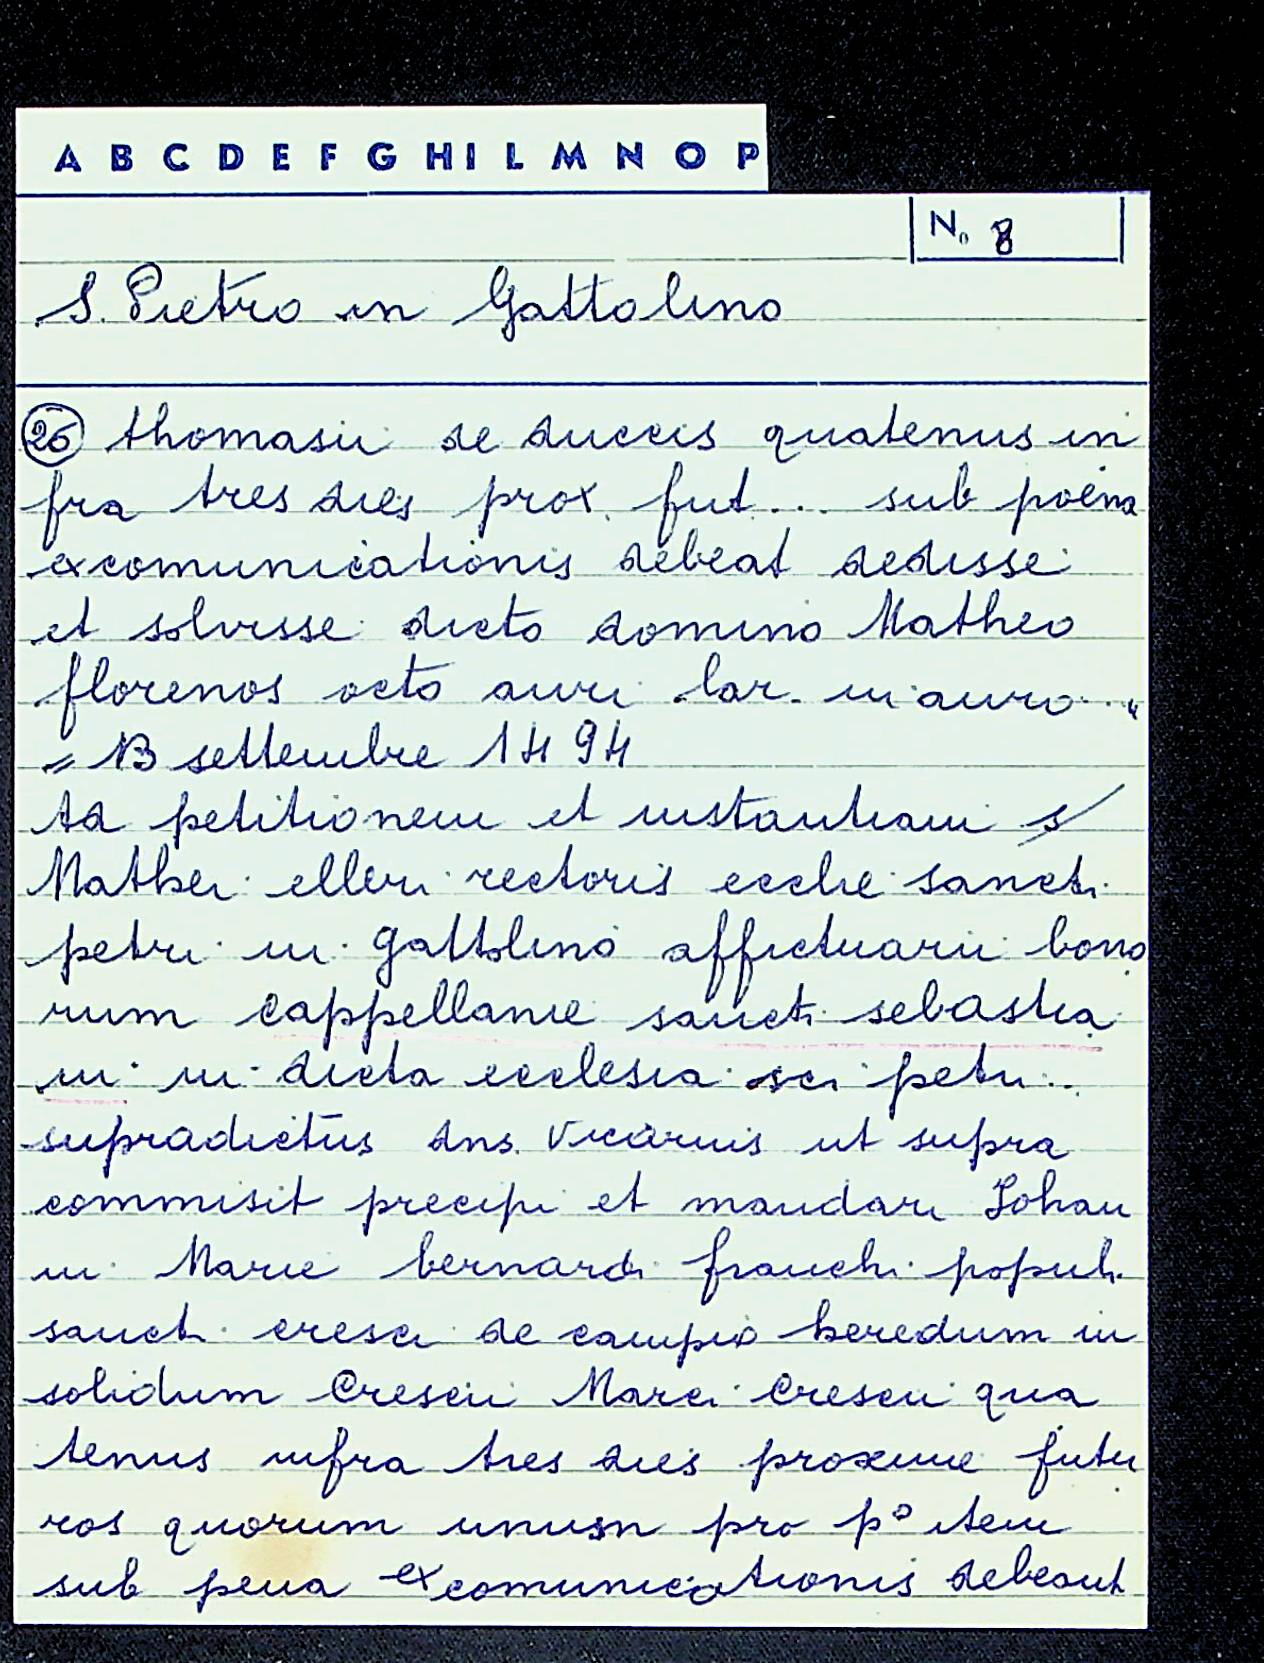 A B C D E F G H I L M N O P
N. 8
S. Pietro in Gattolino
26 thomasii de duccis quatenus in
fra tres dies prox. fut... sub poena
excomunicationis debeat dedisse
et solvisse dicto domino Matheo
florenos octo auri lar. in auro.. "
= 13 settembre 1494
Ad petitionem et instantiam s/
Mathei elleri rectoris ecclie sancti
petri in gattolino affictuarii bono
rum cappellanie sancti sebastia
ni in dicta ecclesia sci petri..
supradictus dns. vicarius ut supra
commisit precipi et mandari Johan
ni Marie bernardi franchi populi
sancti cresci de campio heredum in
solidum Crescii Marci Crescii qua
tenus infra tres dies proxime futu
ros quorum unum pro pº item
sub pena excomunicationis debeant